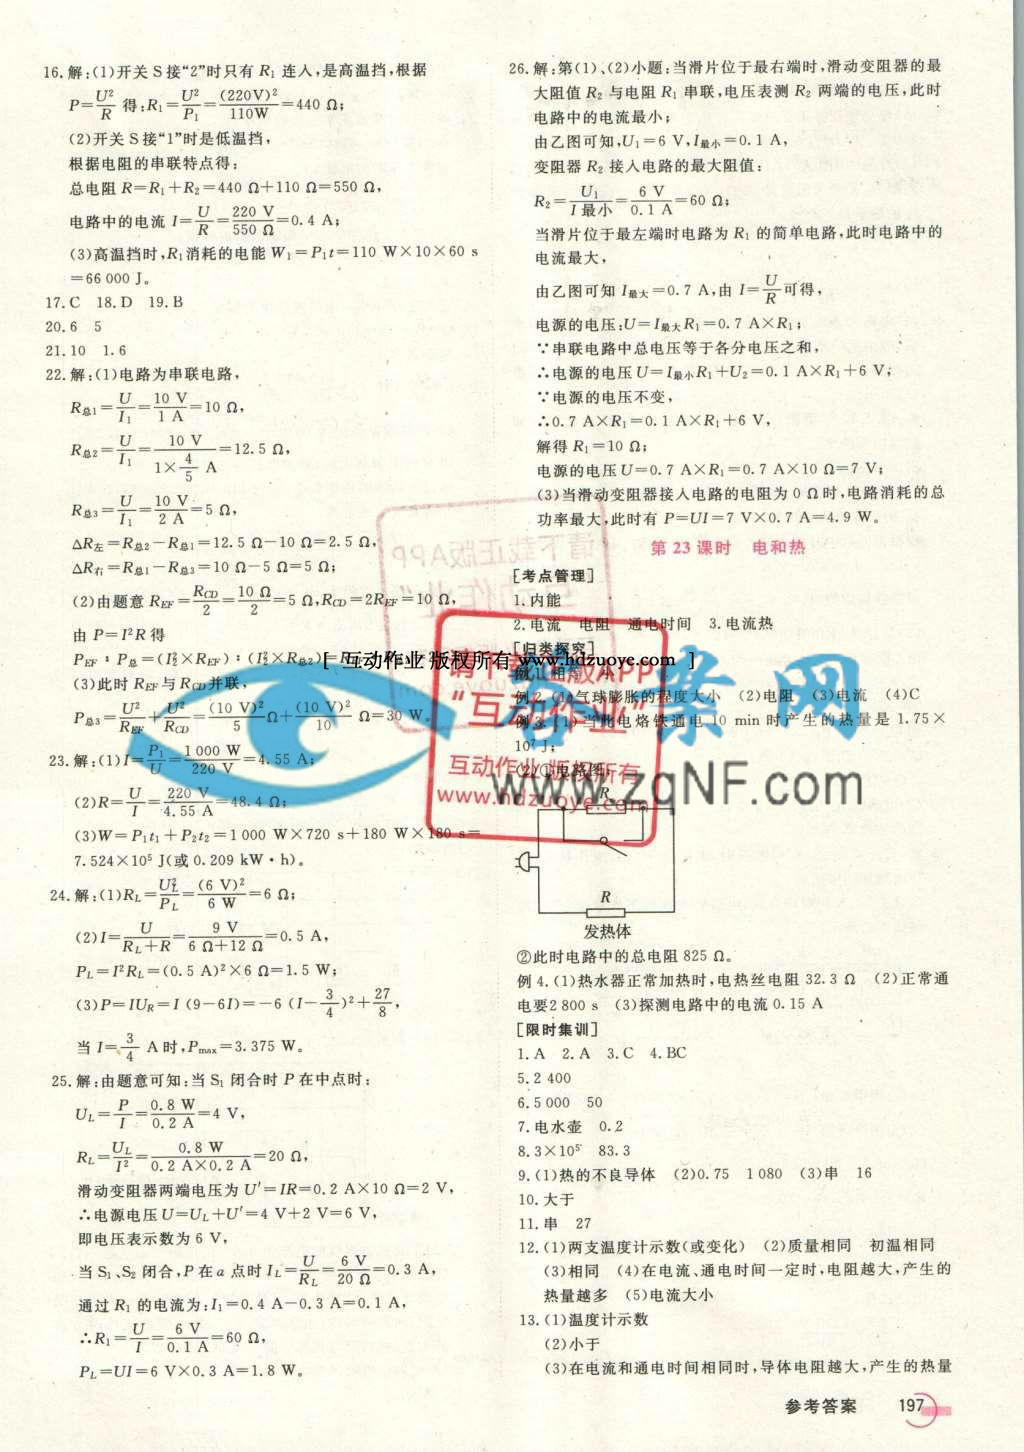 16.解:(1)开关S接“2”时只有R1连入,是高温挡,根据
P=U²/R 得:R1=U²/P1=(220V)²/110W=440 Ω;
(2)开关S接“1”时是低温挡,
根据电阻的串联特点得:
总电阻R=R1+R2=440 Ω+110 Ω=550 Ω,
电路中的电流 I=U/R=220 V/550 Ω=0.4 A;
(3)高温挡时,R1消耗的电能W1=P1t=110 W×10×60 s
=66 000 J。
17.C 18.D 19.B
20.6 5
21.10 1.6
22.解:(1)电路为串联电路,
R总1=U/I1=10 V/1 A=10 Ω,
R总2=U/I1=10 V/(1×4/5 A)=12.5 Ω,
R总3=U/I1=10 V/2 A=5 Ω,
ΔR左=R总2-R总1=12.5 Ω-10 Ω=2.5 Ω,
ΔR右=R总1-R总3=10 Ω-5 Ω=5 Ω;
(2)由题意REF=RCD/2=10 Ω/2=5 Ω,RCD=2REF=10 Ω,
由 P=I²R得
PEF∶P总=(I2²×REF)∶(I2²×R总2)=
(3)此时REF与RCD并联,
P总3=U²/REF+U²/RCD=(10 V)²/5 Ω+(10 V)²/10 Ω=30 W。
23.解:(1)I=P1/U=1 000 W/220 V=4.55 A;
(2)R=U/I=220 V/4.55 A=48.4 Ω;
(3)W=P1t1+P2t2=1 000 W×720 s+180 W×180 s=
7.524×10⁵ J(或0.209 kW·h)。
24.解:(1)RL=UL²/PL=(6 V)²/6 W=6 Ω;
(2)I=U/(RL+R)=9 V/(6 Ω+12 Ω)=0.5 A,
PL=I²RL=(0.5 A)²×6 Ω=1.5 W;
(3)P=IUR=I(9-6I)=-6(I-3/4)²+27/8,
当 I=3/4 A时,Pmax=3.375 W。
25.解:由题意可知:当S1闭合时P在中点时:
UL=P/I=0.8 W/0.2 A=4 V,
RL=UL/I²=0.8 W/(0.2 A×0.2 A)=20 Ω,
滑动变阻器两端电压为U′=IR=0.2 A×10 Ω=2 V,
∴电源电压U=UL+U′=4 V+2 V=6 V,
即电压表示数为6 V,
当S1、S2闭合,P在a点时IL=U/RL=6 V/20 Ω=0.3 A,
通过R1的电流为:I1=0.4 A-0.3 A=0.1 A,
∴R1=U/I=6 V/0.1 A=60 Ω,
PL=UI=6 V×0.3 A=1.8 W。
26.解:第(1)、(2)小题:当滑片位于最右端时,滑动变阻器的最
大阻值R2与电阻R1串联,电压表测R2两端的电压,此时
电路中的电流最小;
由乙图可知,U1=6 V,I最小=0.1 A,
变阻器R2接入电路的最大阻值:
R2=U1/I最小=6 V/0.1 A=60 Ω;
当滑片位于最左端时电路为R1的简单电路,此时电路中的
电流最大,
由乙图可知I最大=0.7 A,由I=U/R可得,
电源的电压:U=I最大R1=0.7 A×R1;
∵串联电路中总电压等于各分电压之和,
∴电源的电压U=I最小R1+U2=0.1 A×R1+6 V;
∵电源的电压不变,
∴0.7 A×R1=0.1 A×R1+6 V,
解得R1=10 Ω;
电源的电压U=0.7 A×R1=0.7 A×10 Ω=7 V;
(3)当滑动变阻器接入电路的电阻为0 Ω时,电路消耗的总
功率最大,此时有P=UI=7 V×0.7 A=4.9 W。
第23课时 电和热
[考点管理]
1.内能
2.电流 电阻 通电时间 3.电流热
[归类探究]
例1.相等 小
例2.(1)气球膨胀的程度大小 (2)电阻 (3)电流 (4)C
例3.(1)当此电烙铁通电10 min时产生的热量是1.75×
10⁷ J;
(2)①电路图
R0
R
发热体
②此时电路中的总电阻825 Ω。
例4.(1)热水器正常加热时,电热丝电阻32.3 Ω (2)正常通
电要2 800 s (3)探测电路中的电流0.15 A
[限时集训]
1.A 2.A 3.C 4.BC
5.2 400
6.5 000 50
7.电水壶 0.2
8.3×10⁵ 83.3
9.(1)热的不良导体 (2)0.75 1 080 (3)串 16
10.大于
11.串 27
12.(1)两支温度计示数(或变化) (2)质量相同 初温相同
(3)相同 (4)在电流、通电时间一定时,电阻越大,产生的
热量越多 (5)电流大小
13.(1)温度计示数
(2)小于
(3)在电流和通电时间相同时,导体电阻越大,产生的热量
参考答案 197
[ 互动作业 版权所有 www.hdzuoye.com ]
请下载正版APP
“互动作业”
互动作业 版权所有
www.hdzuoye.com
答案网
www.zqNF.com